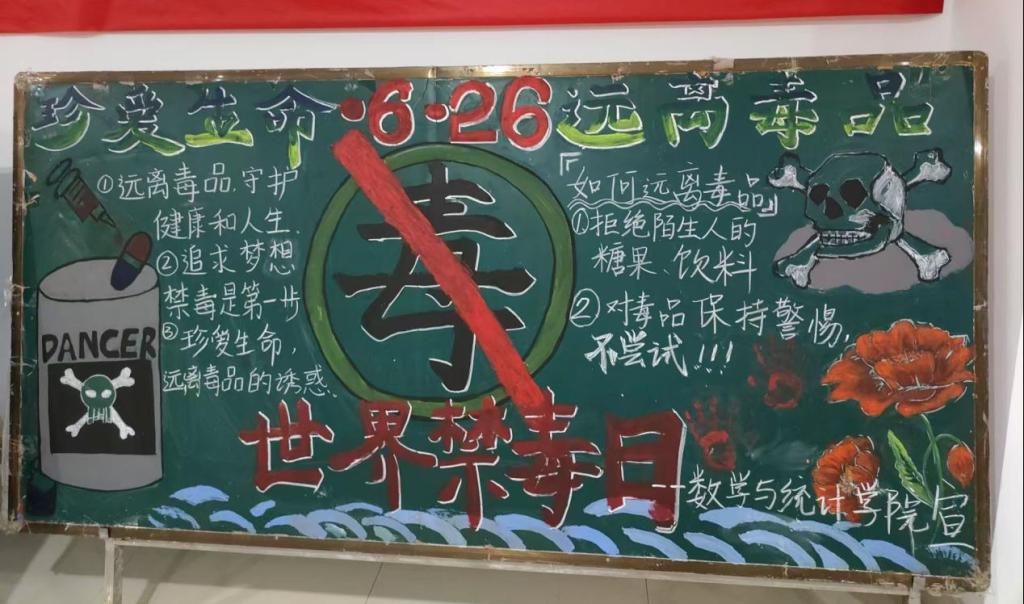 珍爱生命·6·26远离毒品
①远离毒品、守护
健康和人生、
②追求梦想
禁毒是第一步
③珍爱生命，
远离毒品的诱惑、
DANCER
毒
「如何远离毒品」
①拒绝陌生人的
糖果、饮料
②对毒品保持警惕，
不尝试!!!
世界禁毒日
--数学与统计学院宣